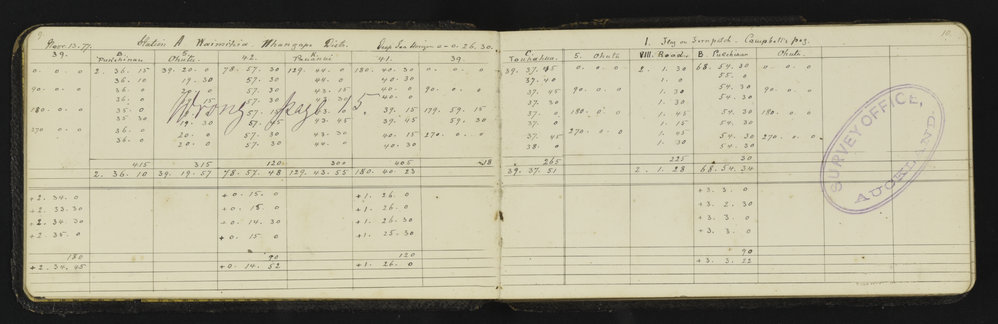 9.
Novr. 13. 77. Station A Waimihia Whangape Dists.
39. B 5. 42. K 41. 39
Pukekiwi Ohuta Pananui
0. 0. 0 2. 36. 15 39. 20. 0 78. 57. 30 129. 44. 0 180. 40. 30 0. 0. 0
36. 10 19. 30 57. 30 44. 0 40. 30
90. 0. 0 36. 0 20. 0 57. 30 43. 15 40. 0 90. 0. 0
36. 0 19. 15 57. 30 43. 30 40. 0
180. 0. 0 35. 0 57. 15 39. 15 179. 59. 15
35. 30 19. 30 57. 30 43. 45 39. 45 59. 30
270. 0. 0 36. 0 20. 0 57. 30 43. 30 40. 15 270. 0. 0
36. 0 20. 0 57. 30 44. 0 40. 30
Wrong peg 5.
415 315 120 300 405 18
2. 36. 10 39. 19. 57 78. 57. 48 129. 43. 55 180. 40. 23
+ 2. 34. 0 + 0. 15. 0 + 1. 26. 0
+ 2. 33. 30 + 0. 15. 0 + 1. 26. 0
+ 2. 34. 30 + 0. 14. 30 + 1. 26. 30
+ 2. 35. 0 + 0. 15. 0 + 1. 25. 30
180 90 120
+ 2. 34. 45 + 0. 14. 52 + 1. 26. 0
10.
1. Flag on Campbell's peg.
C. 5. Ohuta VIII. Road. B Pukekiwi Ohuta.
39. 37. 45 0. 0. 0 2. 1. 30 68. 54. 30 0. 0. 0
37. 40 1. 0 55. 0
37. 30 90. 0. 0 1. 30 54. 30 90. 0. 0
37. 30 1. 30 54. 30
37. 0 180. 0. 0 1. 45 54. 30 180. 0. 0
37. 0 1. 15 54. 30
37. 45 270. 0. 0 1. 45 54. 30 270. 0. 0
38. 0 1. 30 54. 30
265 225 30
39. 37. 51 2. 1. 28 68. 54. 34
+ 3. 3. 0
+ 3. 2. 30
+ 3. 3. 0
+ 3. 3. 0
90
+ 3. 3. 22
SURVEY OFFICE,
AUCKLAND